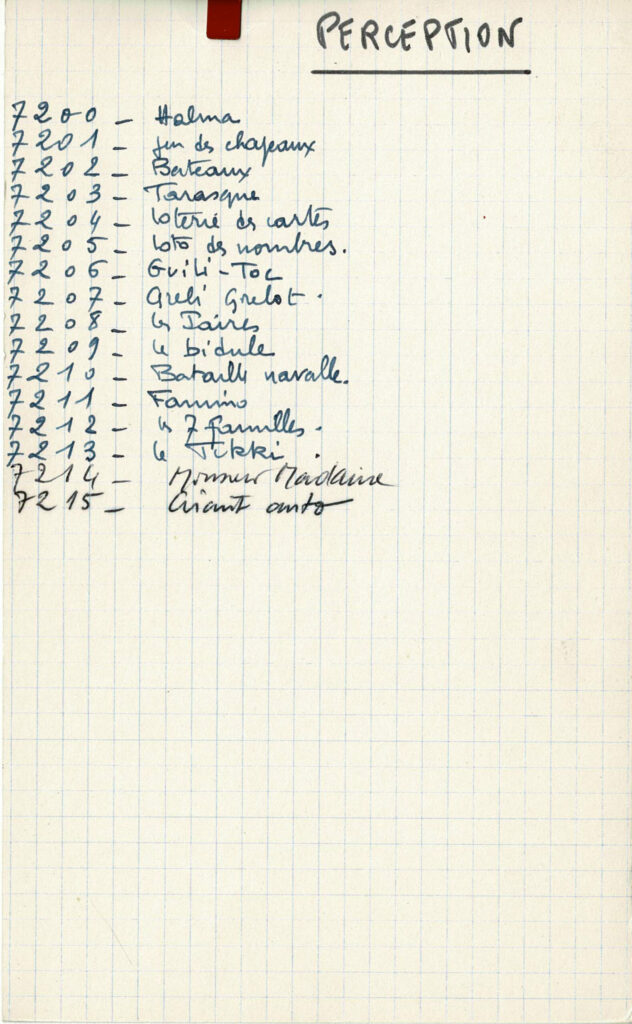 PERCEPTION
7200 - Halma
7201 - Jeu des chapeaux
7202 - Bateaux
7203 - Tarasque
7204 - loterie des cartes
7205 - loto des nombres.
7206 - Guili-Toc
7207 - Greli Grelot.
7208 - les Paires
7209 - le bidule
7210 - Bataille navalle.
7211 - Famino
7212 - les 7 familles.
7213 - le Tikki.
7214 - Monsieur Madame
7215 - auto